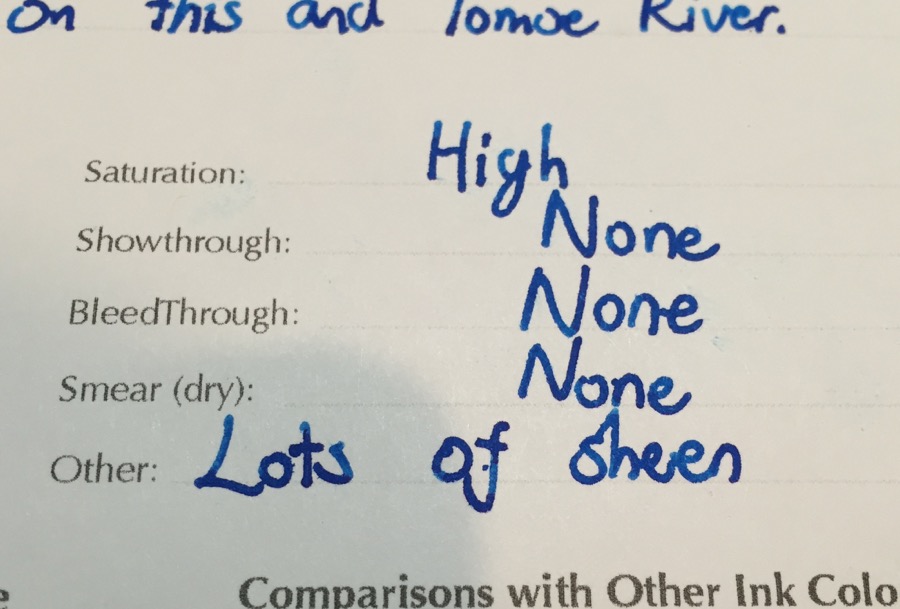 on this and Tomoe River.
Saturation: High
Showthrough: None
BleedThrough: None
Smear (dry): None
Other: Lots of sheen
Comparisons with Other Ink Colo